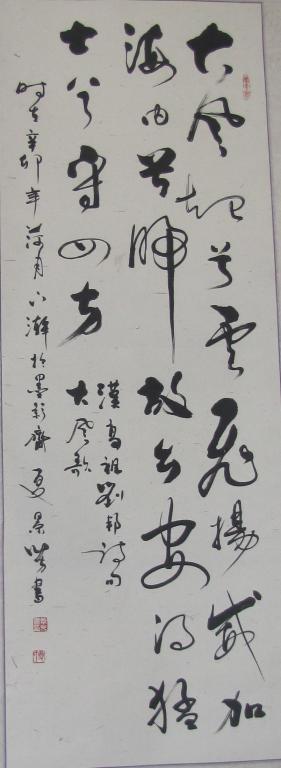 大风起兮云飞揚威加
海内兮歸故乡安得猛
士兮守四方
漢高祖劉邦詩句
大风歌
时在辛卯年荷月下澣於墨彩齋夏景書